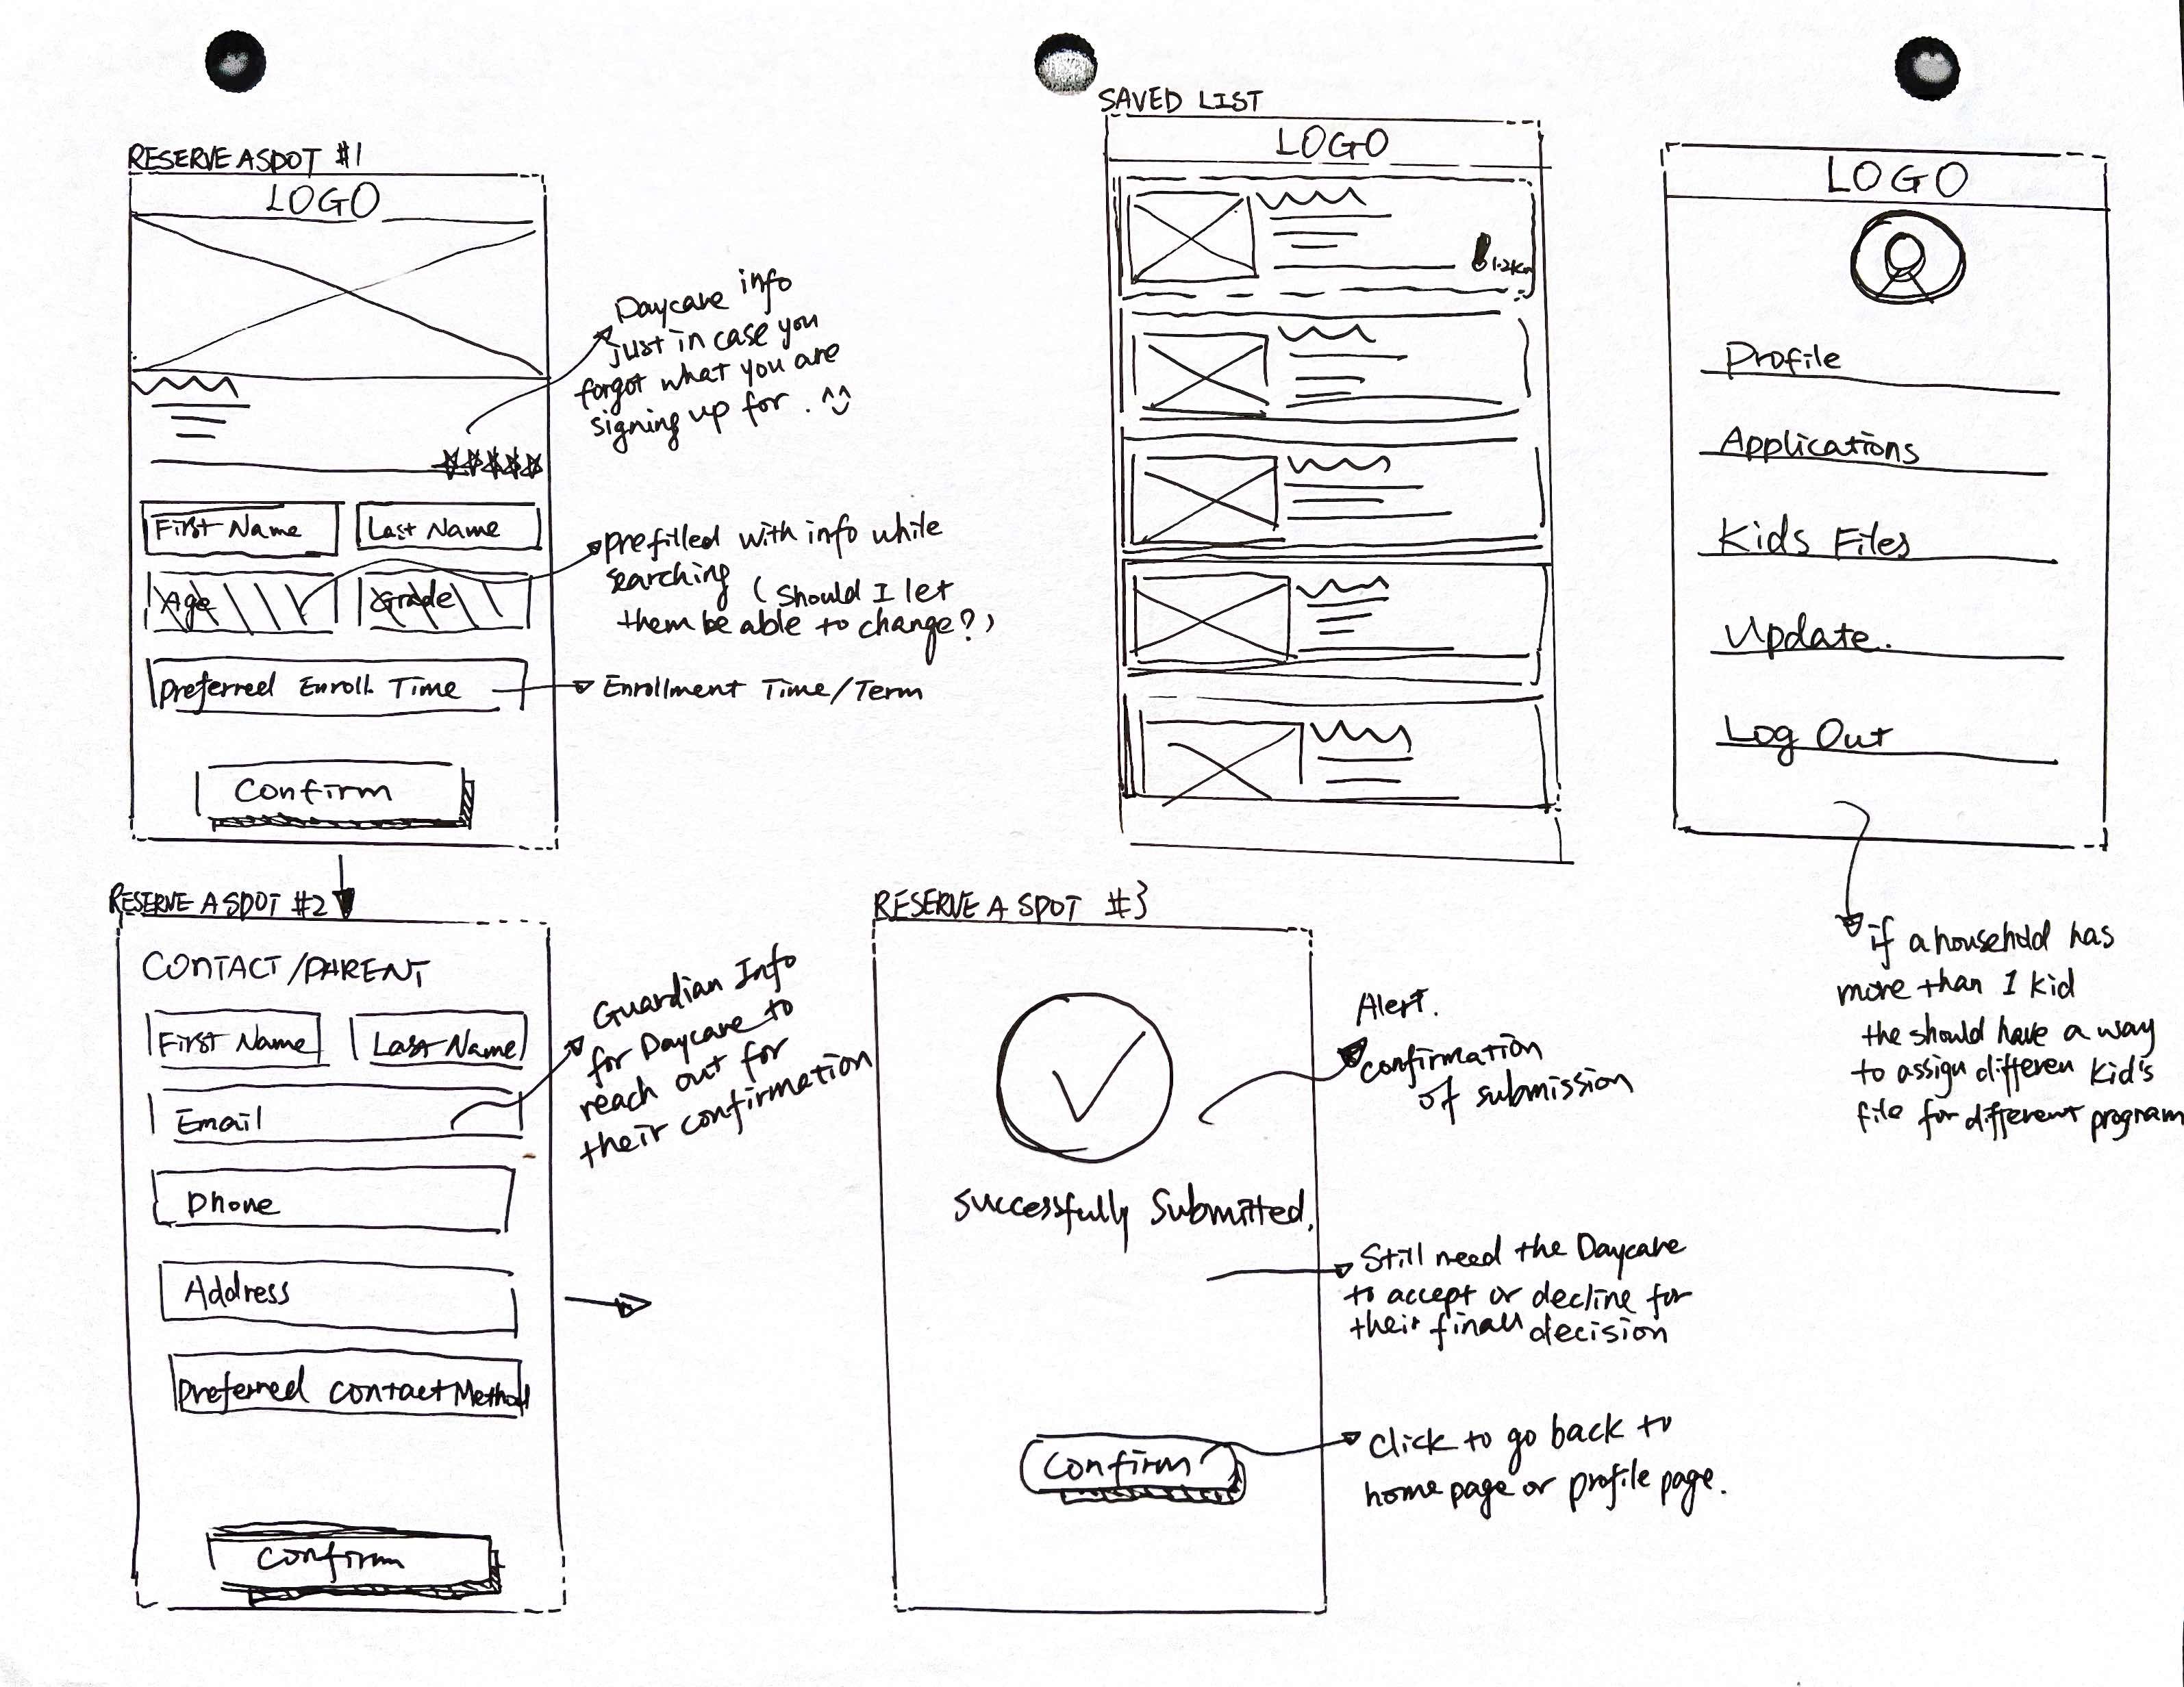 RESERVE A SPOT #1
LOGO
First Name
Last Name
Age
Grade
Preferred Enroll. Time
Confirm
Daycare info
just in case you
forgot what you are
signing up for. ^^
prefilled with info while
searching (should I let
them be able to change?)
Enrollment Time/Term
SAVED LIST
LOGO
1.2km
LOGO
Profile
Applications
Kids Files
Update.
Log Out
if a household has
more than 1 kid
the should have a way
to assign differen kid's
file for different program
RESERVE A SPOT #2
CONTACT/PARENT
First Name
Last Name
Email
Phone
Address
Preferred contact Method
Confirm
Guardian Info
for Daycare to
reach out for
their confirmation
RESERVE A SPOT #3
Successfully Submitted.
Confirm
Alert.
confirmation
of submission
Still need the Daycare
to accept or decline for
their finall decision
Click to go back to
home page or profile page.